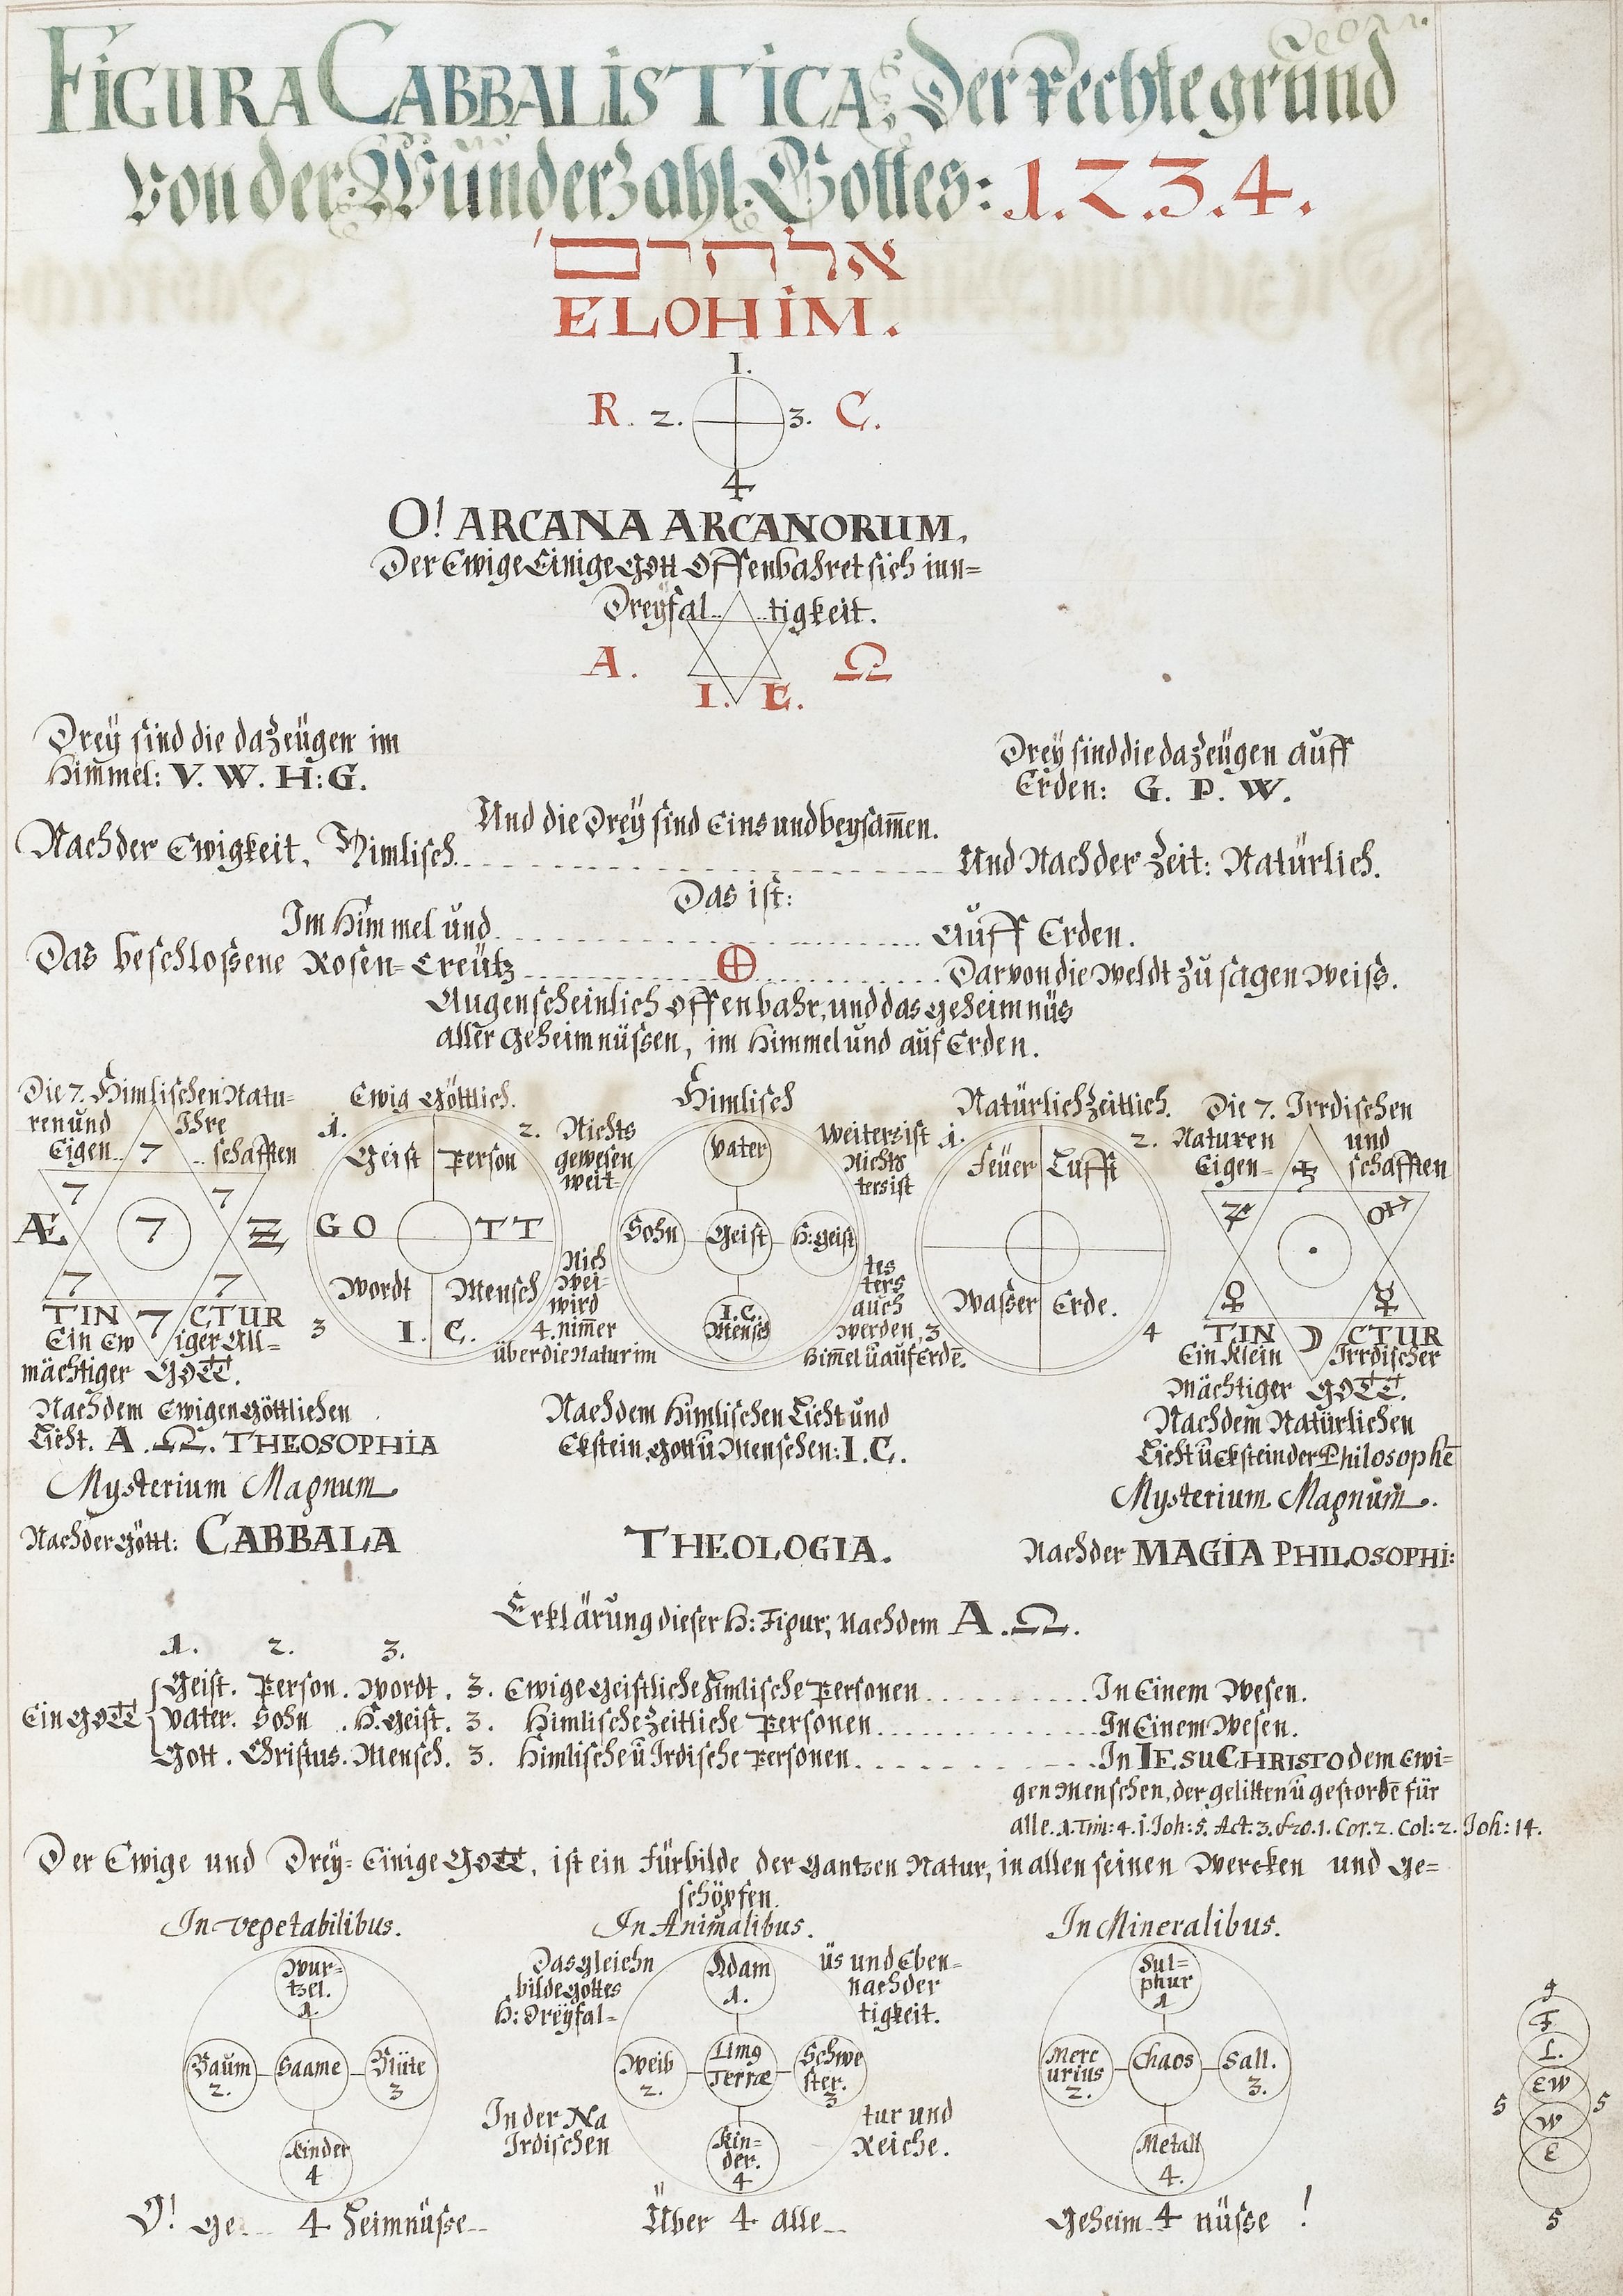 FIGURA CABBALISTICA: Der Rechte grund
von der Wunderzahl Gottes: 1.2.3.4.
אלהים
ELOHIM.
1.
R. 2. 3. C.
4
O! ARCANA ARCANORUM.
Der Ewige Einige Gott Offenbahret sich inn=
Dreyfal.. ..tigkeit.
A. Ω
I. C.
Drey sind die da Zeügen im
Himmel: V. W. H: G.
Drey sind die da Zeügen auff
Erden: G. P. W.
Und die Drey sind Eins und beysam̄en.
Nach der Ewigkeit, Himlisch. Und Nach der Zeit: Natürlich.
Das ist:
Im Himmel und Auff Erden.
Das beschloßene Rosen=Creütz Darvon die Weldt zu sagen Weiss.
Augenscheinlich offenbahr, und das geheimnüs
aller geheimnüssen, im Himmel und auf Erden.
Die 7. Himlischen Natu=
ren und Ihre
Eigen.. 7 ..schafften
7 7
Æ 7 Z
7 7
TIN 7 CTUR
Ein Ew iger All=
mächtiger GOTT.
Ewig Göttlich.
1. 2.
Geist Person
GO TT
Wordt Mensch
3 I. C. 4.
Nichts
gewesen
weit=
Nich
wei=
wird
nim̄er
über die Natur im
Himlisch
Vater
Sohn Geist H: geist
I. C.
Mensch
Weiters ist
Nichts
ters ist
tes
ters
auch
werden,
Him̄el ū auf Erdē.
Natürlich Zeitlich.
1. 2.
Feüer Lufft
Wasser Erde.
3 4
Die 7. Irrdischen
Naturen und
Eigen= ♄ schafften
♃ ♂
☉
♀ ☿
TIN ☽ CTUR
Ein Klein Irrdischer
Mächtiger GOTT.
Nach dem Ewigen Göttlichen
Licht. A. Ω. THEOSOPHIA
Mysterium Magnum
Nach der Göttl: CABBALA
Nach dem Himlischen Licht und
Eckstein, Gott ū Menschen: I. C.
THEOLOGIA.
Nach dem Natürlichen
Licht ū Eckstein der Philosophē
Mysterium Magnum.
Nach der MAGIA PHILOSOPHI:
Erklärung dieser H: Figur, Nach dem A. Ω.
1. 2. 3.
Ein GOTT
Geist. Person. Wordt. 3. Ewige Geistliche Himlische Personen In Einem Wesen.
Vater. Sohn. H. Geist. 3. Himlische Zeitliche Personen In Einem Wesen.
Gott. Christus. Mensch. 3. Himlische ū Irdische Personen In IESU CHRISTO dem Ewi=
gen Menschen, der gelitten ū gestorbē für
alle. 1. Tim: 4. 1. Joh: 5. Act. 3. 1. Cor. 2. Col: 2. Joh: 14.
Der Ewige und Drey=Einige GOTT, ist ein Fürbilde der Gantzen Natur, in allen seinen Wercken und Ge=
schöpfen.
In Vegetabilibus.
Wur=
tzel.
1.
Baum
2.
Saame
Blüte
3
Kinder
4
In Animalibus.
Das gleichn üs und Eben=
bilde Gottes nach der
H: Dreyfal= tigkeit.
Adam
1.
Weib
2.
Limg
Terræ
Schwe
ster.
3
Kin=
der.
4
In der Na tur und
Irdischen Reiche.
In Mineralibus.
Sul=
phur
1
Merc
urius
2.
Chaos
Sall.
3.
Metall
4.
4
F.
L.
EW
5 5
W
E
5
O! Ge... 4 heimnüsse..
Über 4 alle..
Geheim. 4 nüsse !